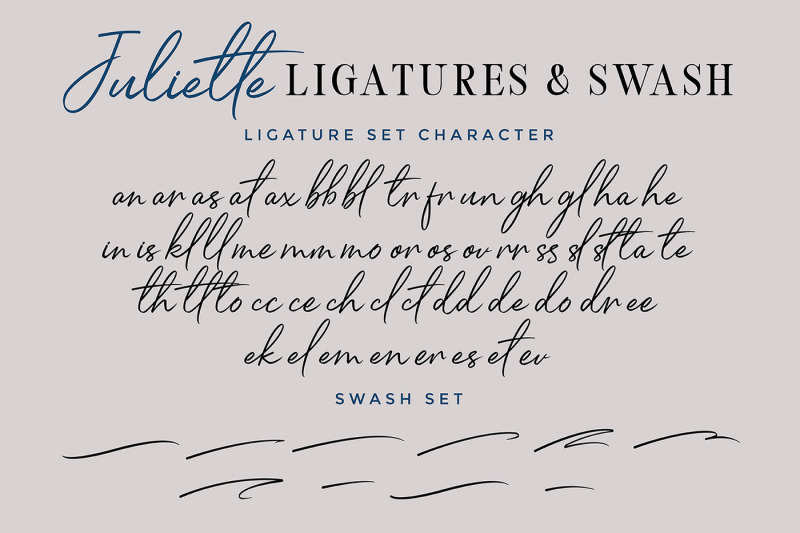 Juliette LIGATURES & SWASH
LIGATURE SET CHARACTER
an ar as at ax bb bl tr fr un gh gl ha he
in is kl ll me mm mo or os ov rr ss sl st ta te
th tt to cc ce ch cl ct dd de do dr ee
ek el em en er es et ev
SWASH SET